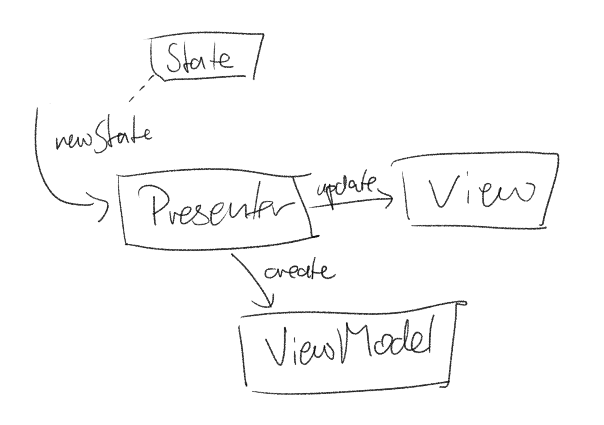 State
newState
Presenter
update
View
create
ViewModel